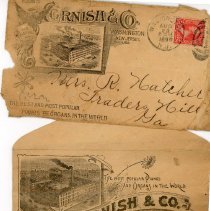 CORNISH & CO.
WASHINGTON
NEW JERSEY.
Mrs. R. Hatcher
Traders Hill
Ga
THE BEST AND MOST POPULAR
PIANOS & ORGANS IN THE WORLD
THE MOST POPULAR PIANOS
AND ORGANS IN THE WORLD
NISH & CO.